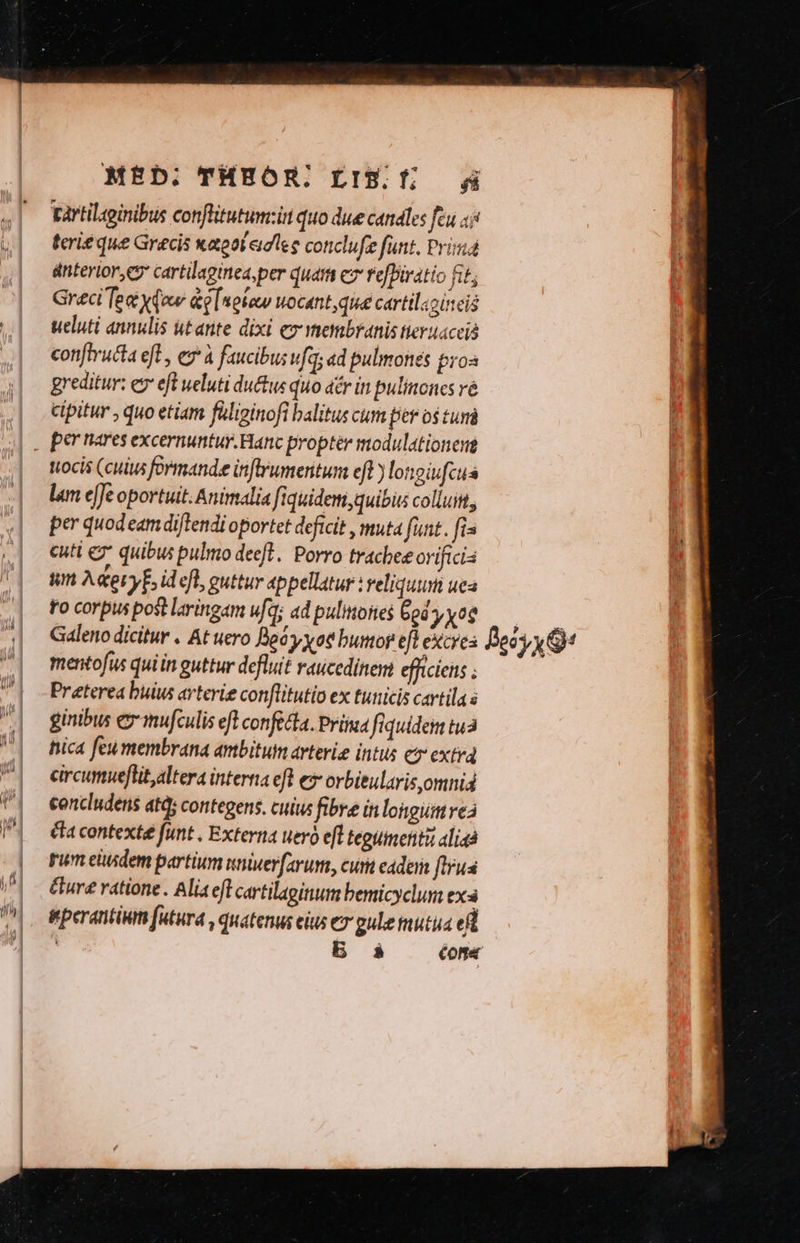 MED: THEOR: LIB. I;
cartilaginibus conſtitutum: in quo due canales ſeu ar
terie que Grecis καρωτίδες concluſæ ſunt. Prima
anterior, & cartilaginea, per quam & reſpiratio fit,
Græci τραχεῖαν ἀρτηρίαν uocant, quæ cartilagineis
ueluti annulis ut ante dixi & membranis neruaceis
conſtructa eſt, & à faucibus uſq; ad pulmones pro=
greditur: & eſt ueluti ductus quo aër in pulmones re
cipitur, quo etiam fuliginoſi halitus cum per os tum
per nares excernuntur. Hanc propter modulationem
uocis (cuius formandæ inſtrumentum eſt) longiuſcu=
lam eſſe oportuit. Animalia ſiquidem, quibus collum,
per quod eam diſtendi oportet deficit, muta ſunt. ſi=
cuti & quibus pulmo deeſt. Porro tracheæ orifici=
um λάρυγξ, id eſt, guttur appellatur: reliquum ue=
ro corpus poſt laringam uſq; ad pulmones βρόγχος
Galeno dicitur. At uero βρόγχος humor eſt excre= βρόγχος
mentoſus qui in guttur defluit raucedinem efficiens;
Præterea huius arteriæ conſtitutio ex tunicis cartila=
ginibus & muſculis eſt confecta. Prima ſiquidem tu=
nica ſeu membrana ambitum arteriæ intus & extrà
circumueſtit, altera interna eſt & orbicularis, omnia
concludens atq; contegens. cuius fibre in longum re=
cta contextæ ſunt. Externa uerò eſt tegumentū alia=
rum eiusdem partium uniuerſarum, cum eadem ſtru=
cturæ ratione. Alia eſt cartilaginum hemicyclum ex=
uperantium ſutura, quatenus eius & gulæ mutua eſt
con=